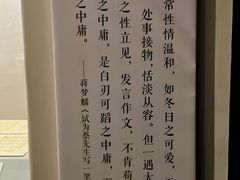 常性情温和，如冬日之可爱，
处事接物，恬淡从容。但一遇大
之性立见，发言作文，不肯苟
之中庸，是白刃可蹈之中庸，
之中庸。
——蒋梦麟《试为蔡先生写一笔